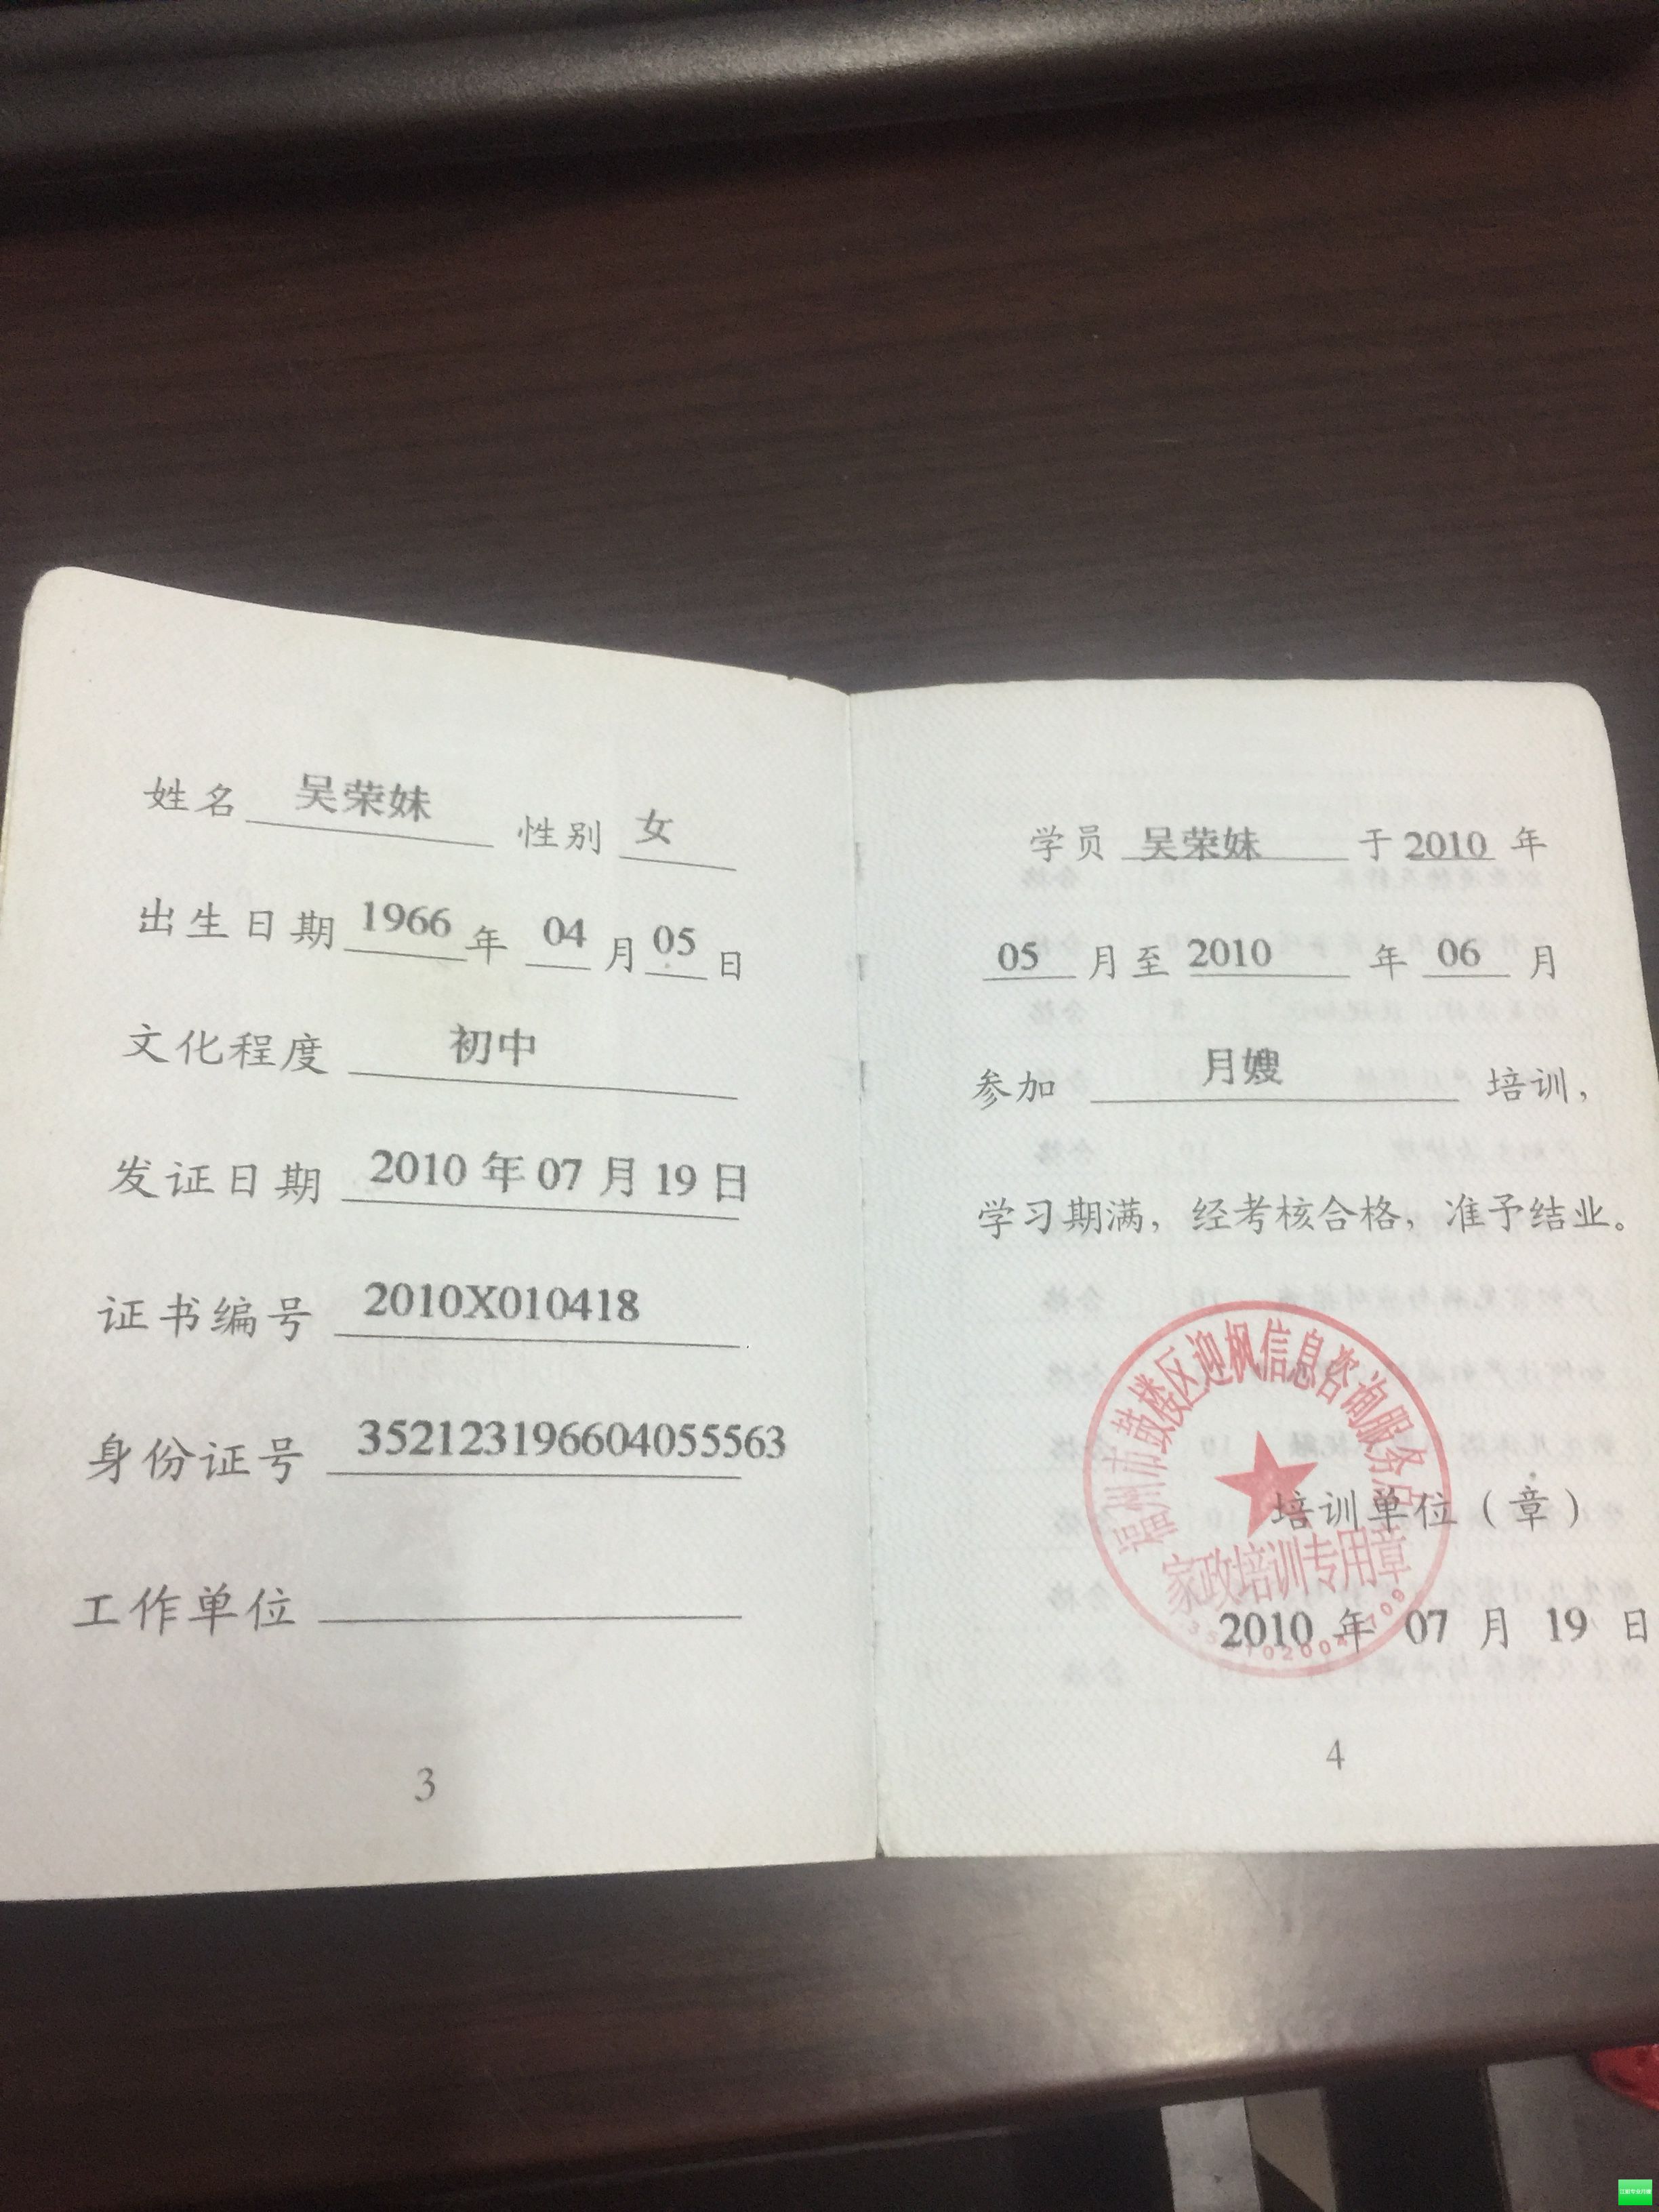 姓名 吴荣妹 性别 女
出生日期 1966 年 04 月 05 日
文化程度 初中
发证日期 2010 年 07 月 19 日
证书编号 2010X010418
身份证号 352123196604055563
工作单位
3
学员 吴荣妹 于 2010 年
05 月至 2010 年 06 月
参加 月嫂 培训，
学习期满，经考核合格，准予结业。
福州市鼓楼区迎枫信息咨询服务
培训单位（章）
家政培训专用章
2010 年 07 月 19 日
4